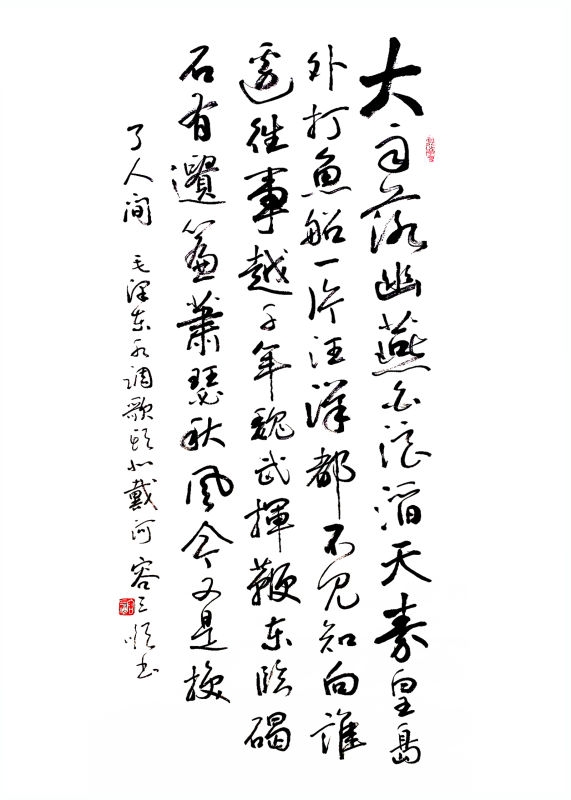 大雨落幽燕白浪滔天秦皇島
外打魚船一片汪洋都不见知向誰
邊往事越千年魏武揮鞭东临碣
石有遺篇蕭瑟秋風今又是换
了人间 毛泽东水调歌頭北戴河 容 顺书